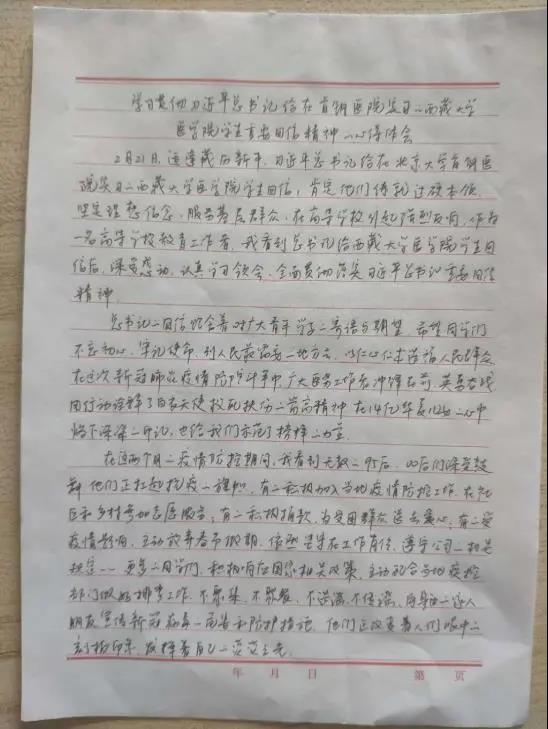 学习贯彻习近平总书记给在首钢医院实习的西藏大学
医学院学生重要回信精神的心得体会
2月21日,适逢藏历新年,习近平总书记给在北京大学首钢医
院实习的西藏大学医学院学生回信,肯定他们练就过硬本领,
坚定理想信念、服务基层群众,在高等学校引起强烈反响,作为
一名高等学校教育工作者,我看到总书记给西藏大学医学院学生回
信后,深受感动,认真学习领会,全面贯彻落实习近平总书记重要回信
精神。
总书记的回信饱含着对广大青年学子的寄语与期望,希望同学们
不忘初心、牢记使命,到人民最需要的地方去,以仁心仁术造福人民群众,
在这次新冠肺炎疫情防控斗争中广大医务工作者冲锋在前、英勇奋战,
用行动诠释了白衣天使救死扶伤的崇高精神,在14亿华夏儿女的心中
烙下深深的印记,也给我们示范了榜样的力量。
在这两个月的疫情防控期间,我看到无数的95后、00后们深受鼓
舞,他们正扛起抗疫的旗帜,有的积极加入当地疫情防控工作,在社
区和乡村参加志愿服务;有的积极捐款,为受困群众送去爱心,有的受
疫情影响,主动放弃春节假期,依然坚守在工作岗位,遵守公司的相关
规定……更多的同学们,积极响应国家相关政策,主动配合当地疫控
部门做好排查工作,不聚集,不聚餐,不造谣,不传谣,向身边的家人
朋友宣传新冠病毒的危害和防护措施,他们正改变着人们眼中的
刻板印象,发挥着自己的莹莹之光。
年 月 日 第 页